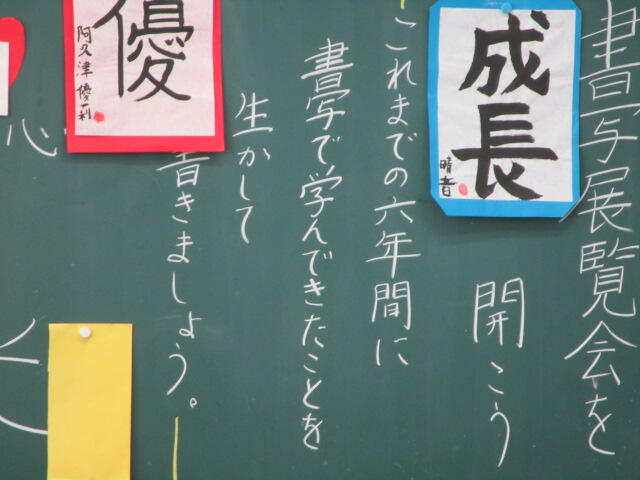 書写展覧会を
開こう
成長
晴音
これまでの六年間に
書写で学んできたことを
生かして
書きましょう。
優
阿久津優莉
心